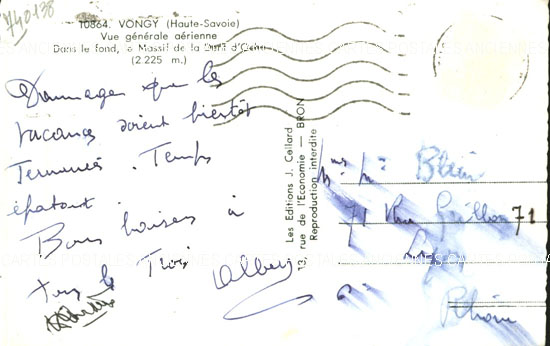 740138
10864. VONGY (Haute-Savoie)
Vue générale aérienne
Dans le fond, le Massif de la Dent d'Oche
(2 225 m.)
Dommage que les
vacances soient bientôt
Terminées. Temps
épatant.
Bons baisers à
Tous les Trois
Les Editions J. Cellard
13, rue de l'Economie — BRON
Reproduction interdite
71 Rue 71
Rhône